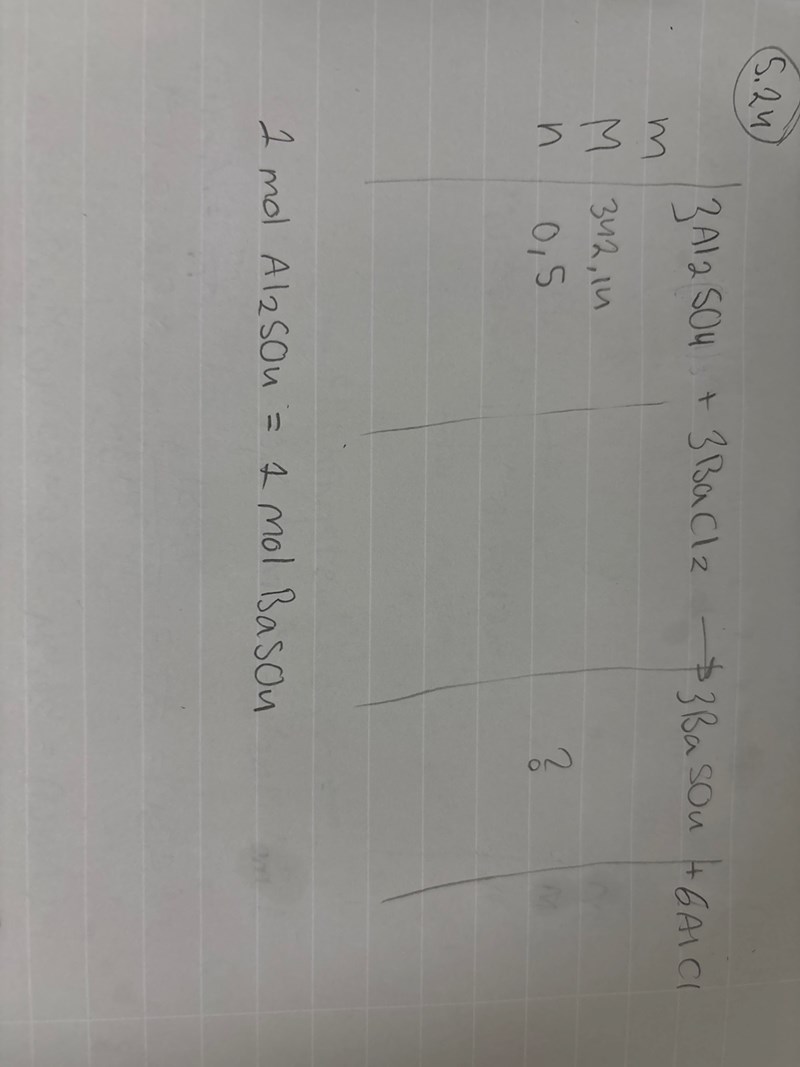 5.24
3Al2SO4 + 3BaCl2 → 3BaSO4 + 6AlCl
m
M 342,14
n 0,5 ?
1 mol Al2SO4 = 1 mol BaSO4